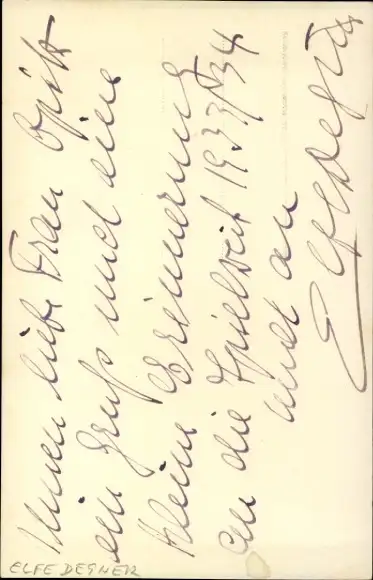 Ihnen liebe Frau Opitz
ein Gruß und eine
kleine Erinnerung
an die Spielzeit 1933/34
und an
Elfe Degner
ELFE DEGNER